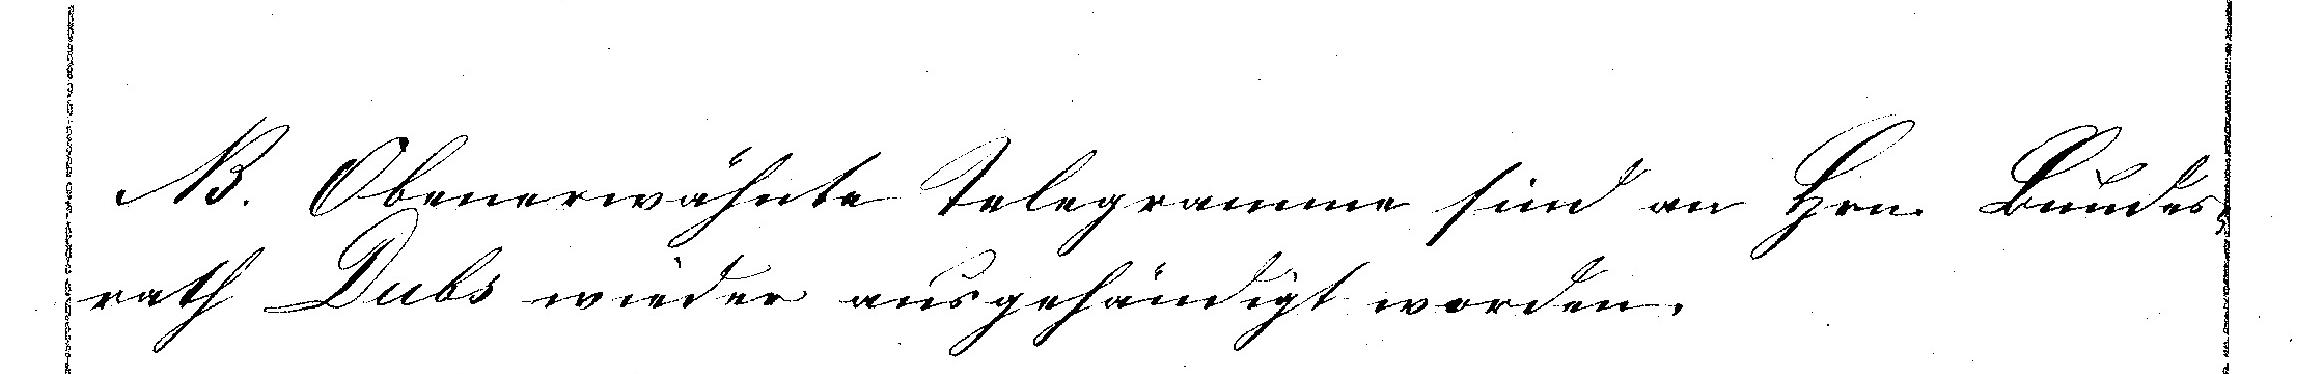 NB. Obenerwähnte Telegramme sind an Hrn. Bundes-
rath Dubs wieder ausgehändigt worden.